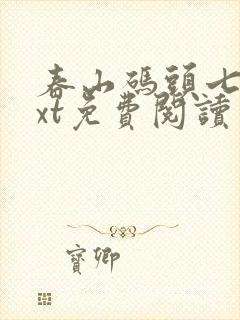 春山碼頭七
xt免費閱讀
寶卿